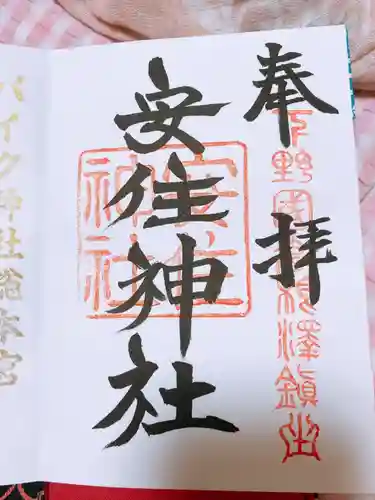 奉拝
下野國粟澤鎮守
安住神社
安住神社
バイク神社総本宮